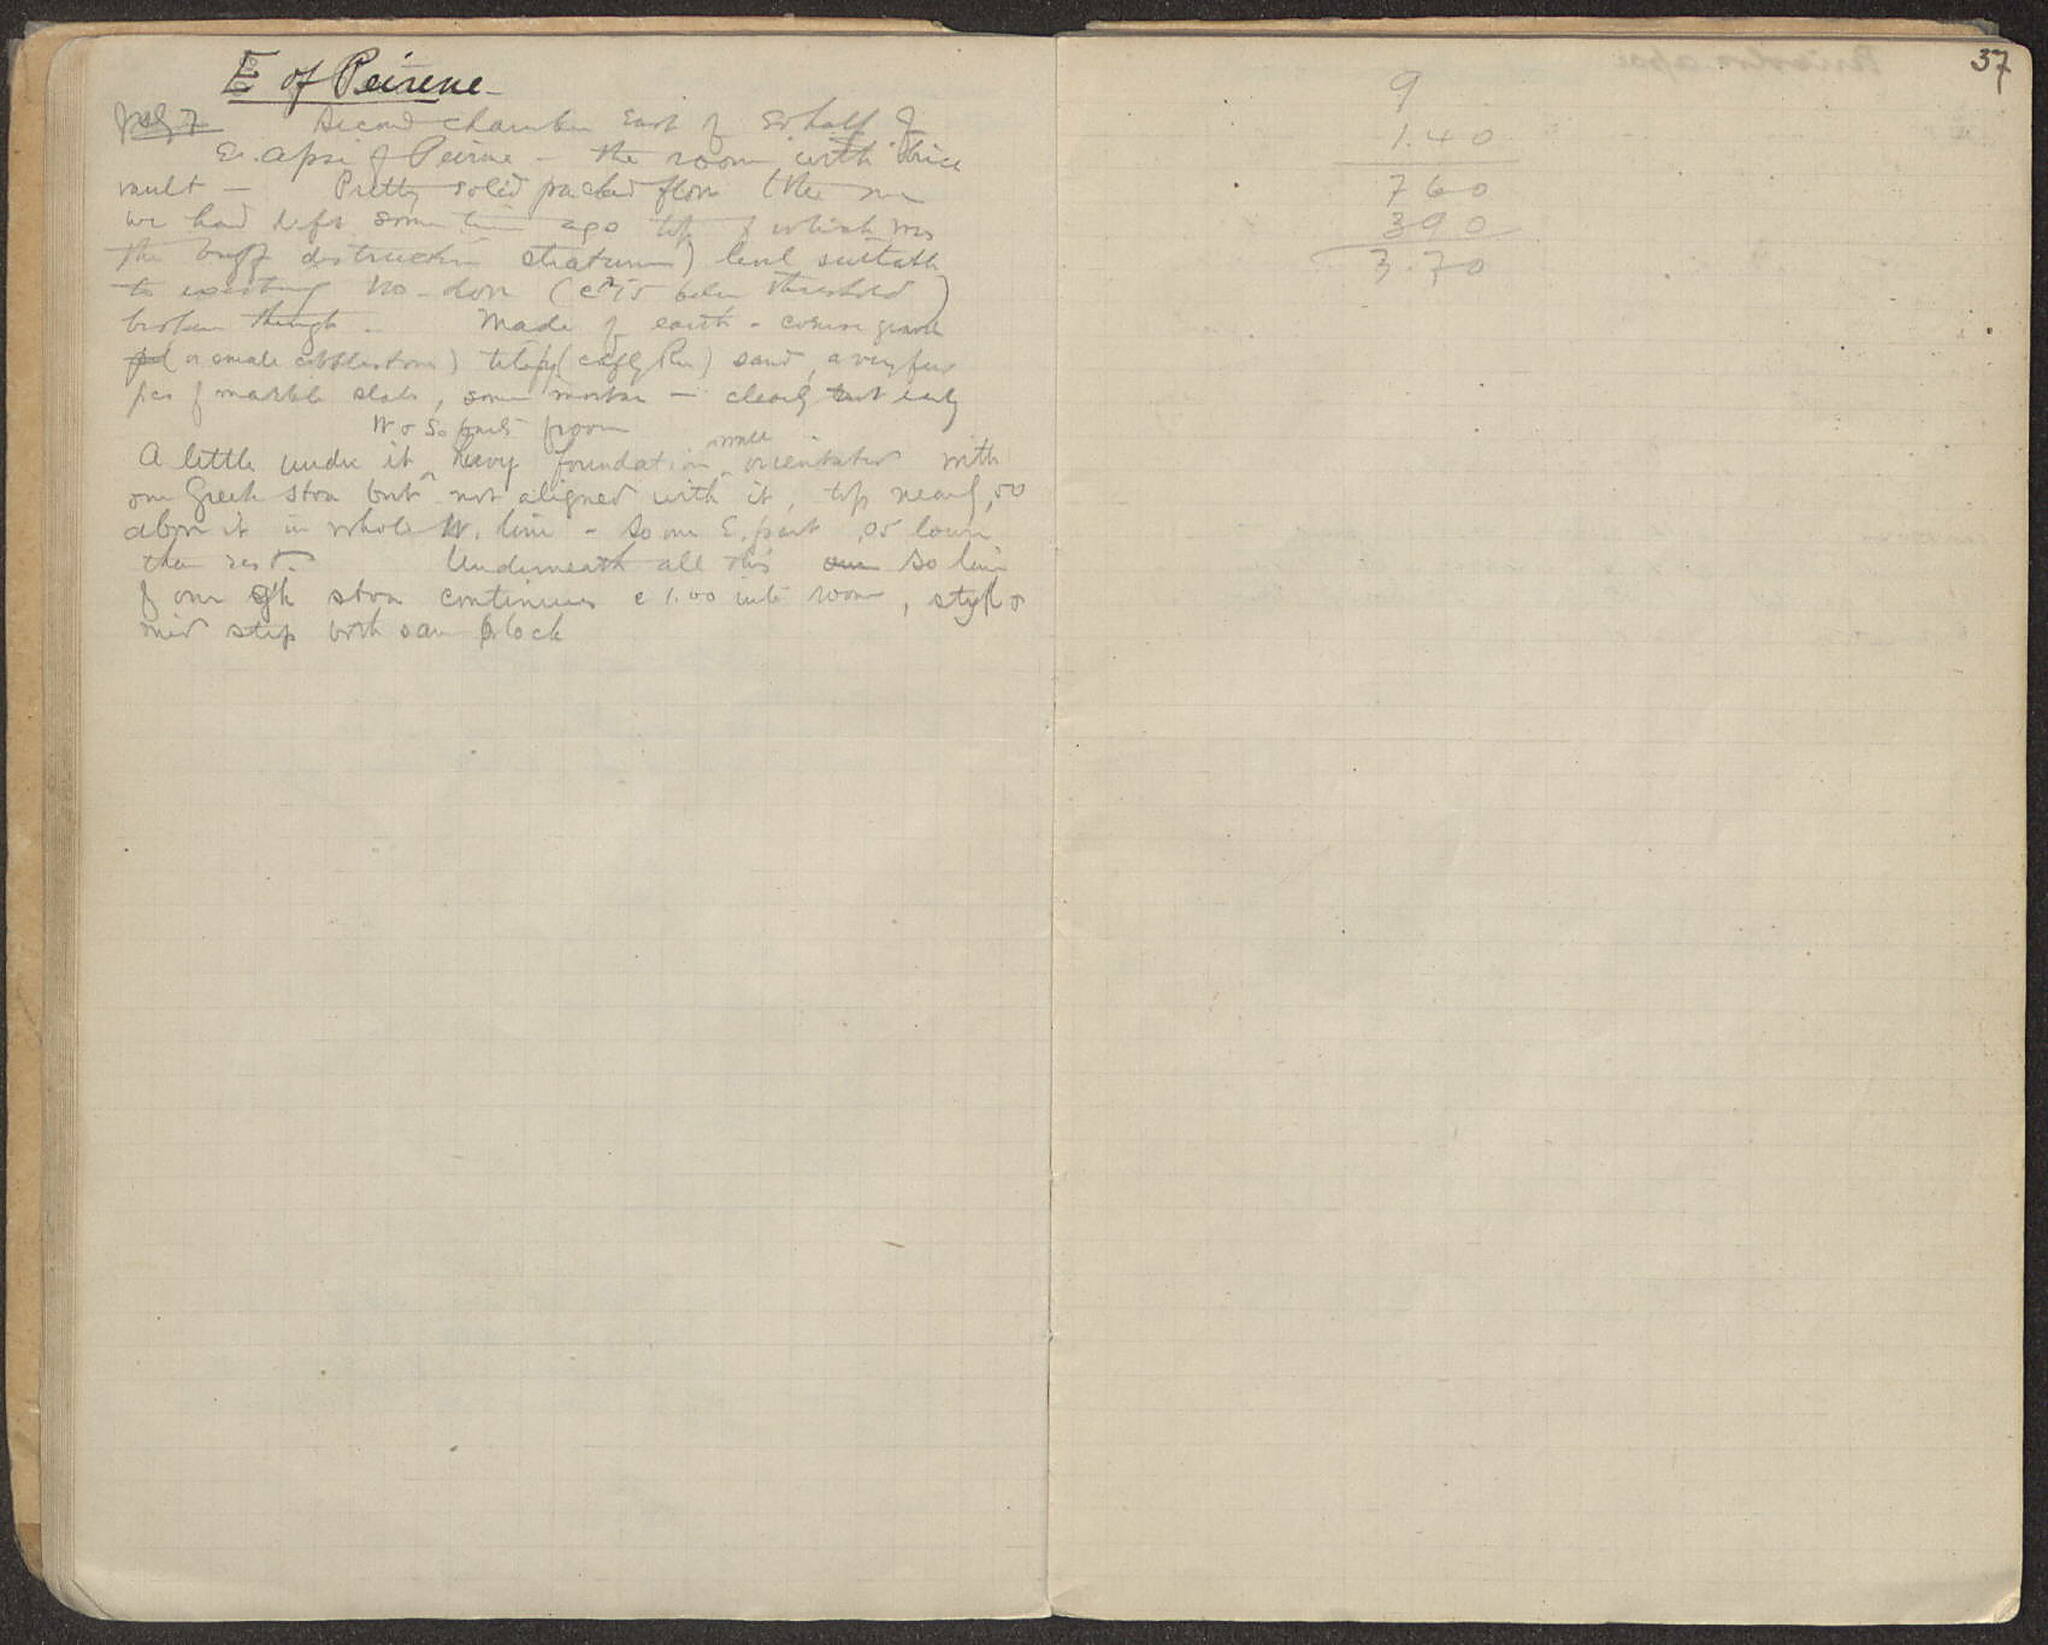 E of Peirene
July 7 Second chamber East of So half of
E. apse of Peirene - the room with brick
vault - Pretty solid packed floor (the one
we had left some time ago top of which was
the destruction stratum) level suitable
to existing No-door (c below threshold)
broken through. Made of earth - coarse gravel
(or small cobblestones) sand, a very few
pcs of marble slabs, some mortar - clearly not early
W & So parts from
A little under it heavy foundation wall orientated with
our Greek stoa but not aligned with it, top nearly .50
above it in whole W. line - some E. part .05 lower
than rest. Underneath all this So line
of our gk stoa continues c 1.00 into room, style &
mid step both same block
37
9
1.40
760
390
3.70